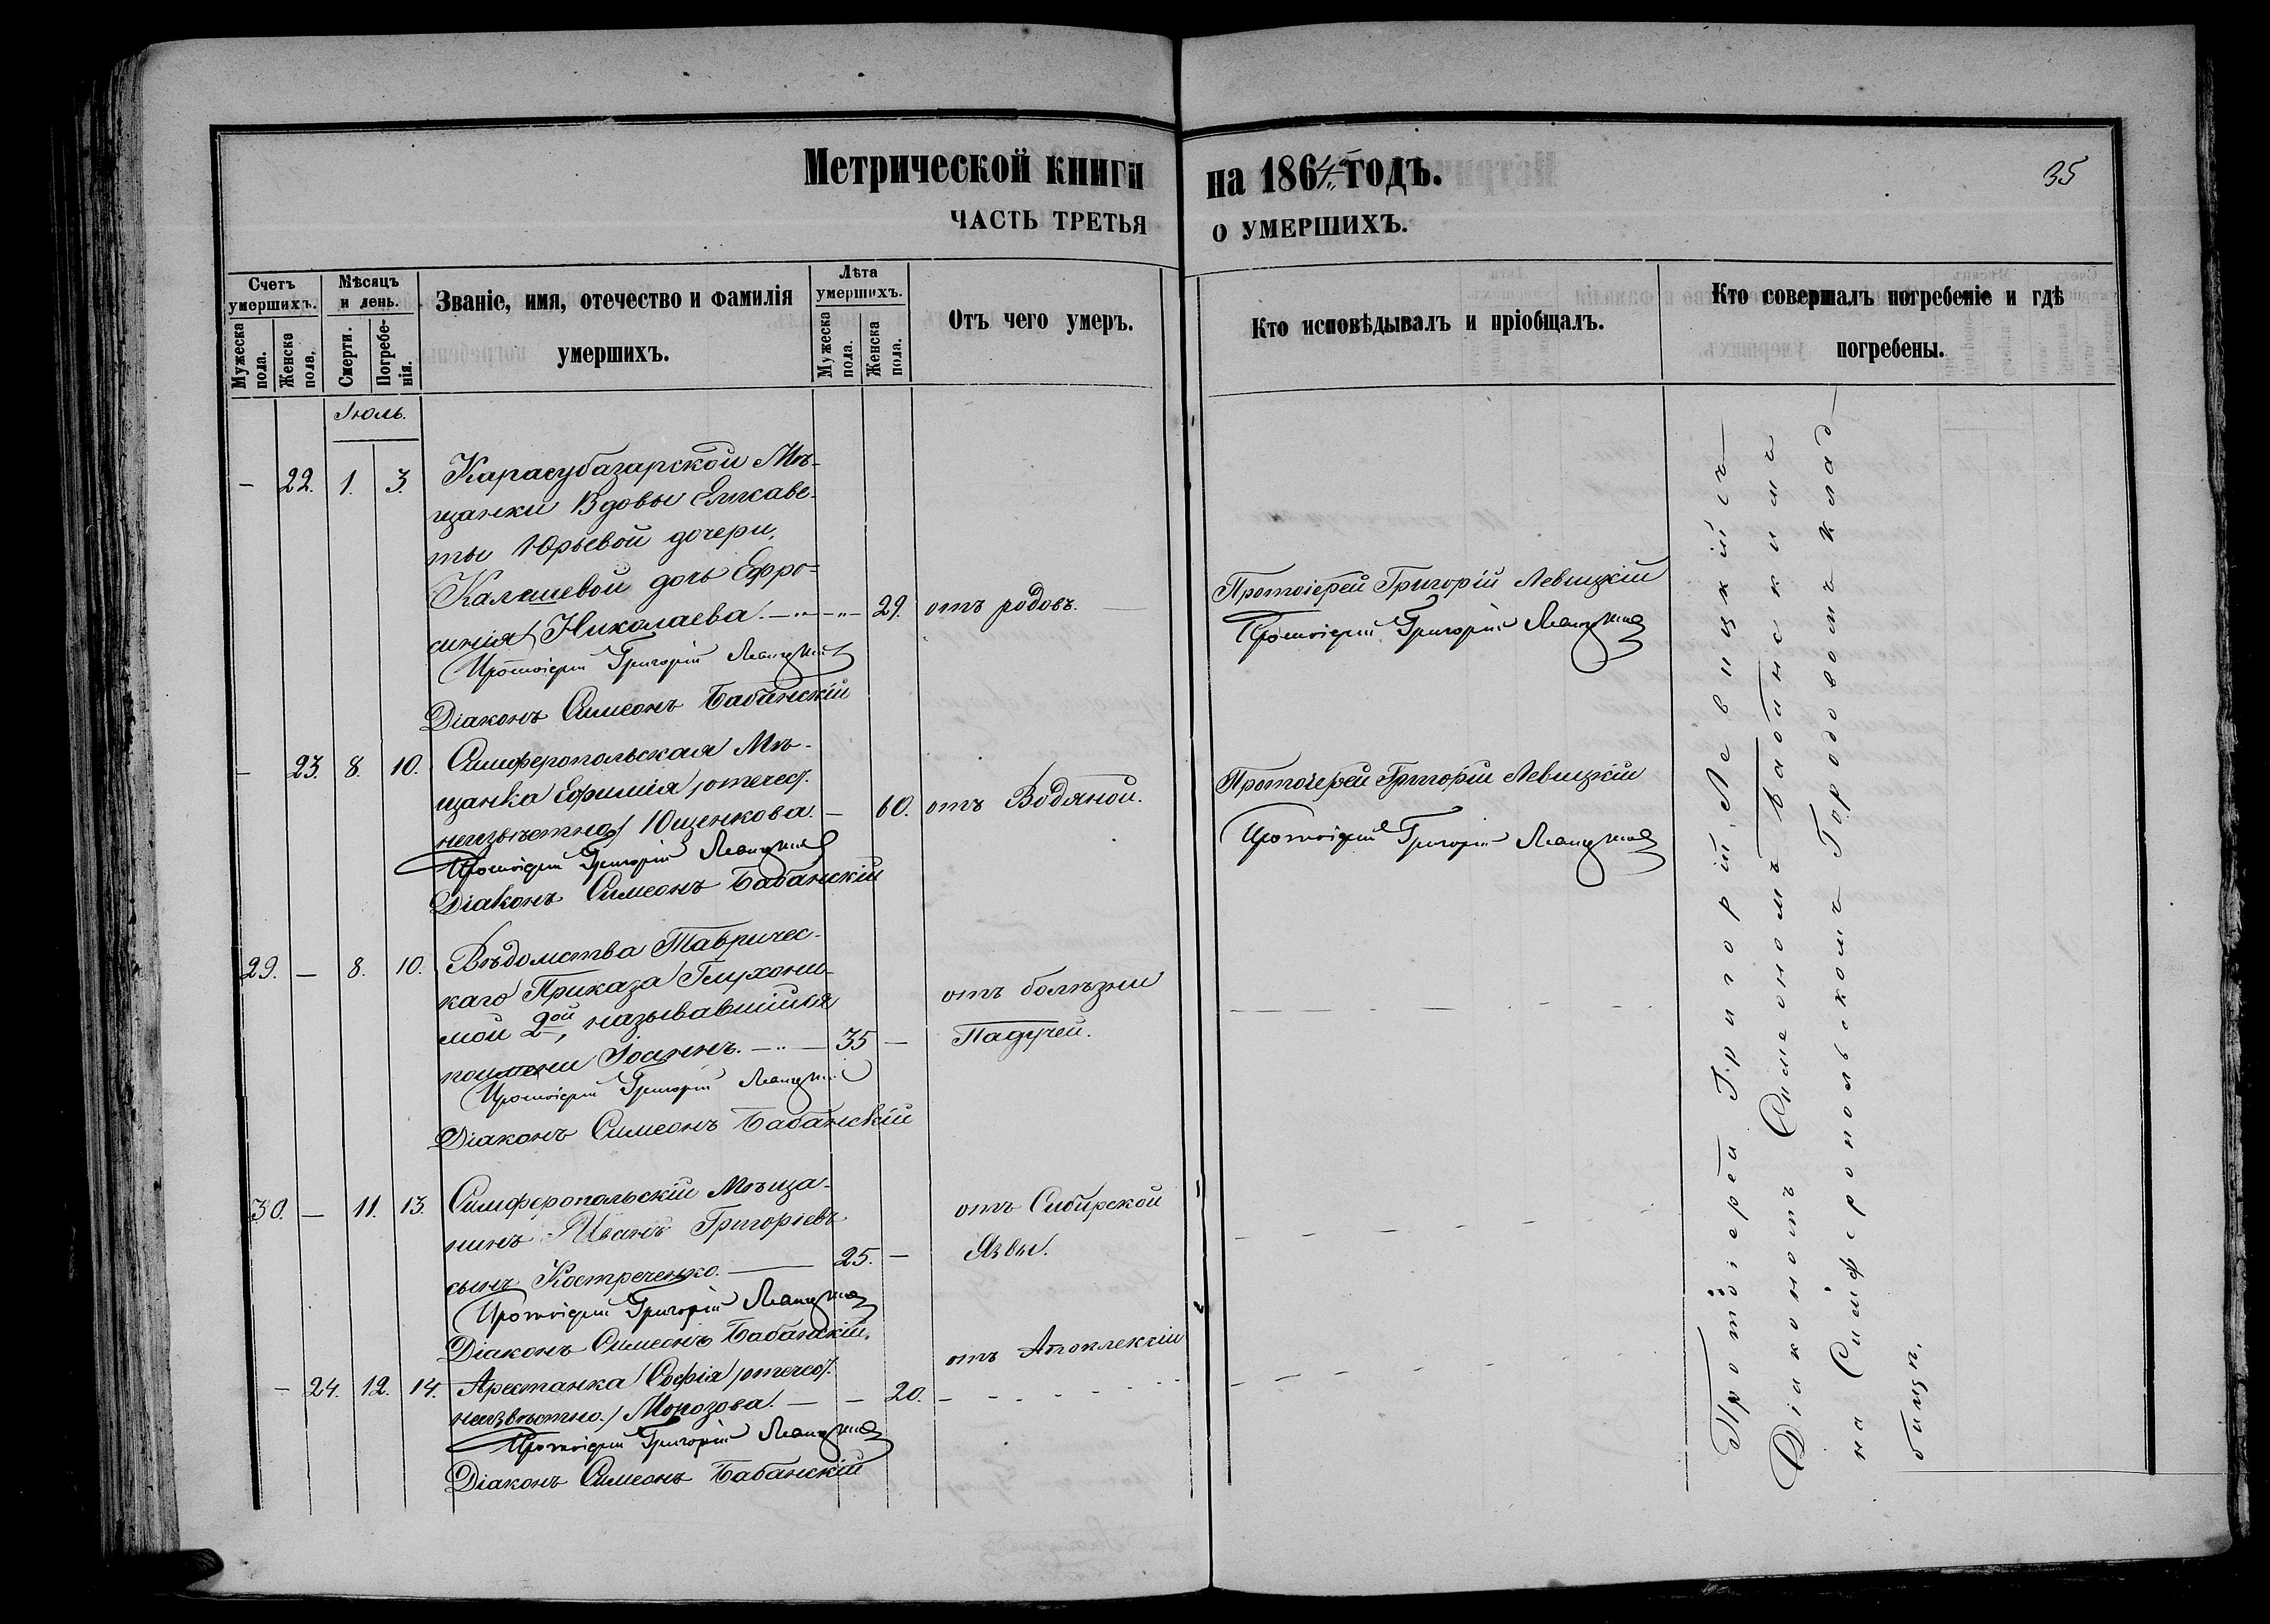 Метрической книги на 1864й годъ.
35
ЧАСТЬ ТРЕТЬЯ О УМЕРШИХЪ.
Счетъ умершихъ.
Мужеска пола.
Женска пола.
Мѣсяцъ и день.
Смерти.
Погребенія.
Званіе, имя, отечество и фамилія
умершихъ.
Лѣта умершихъ.
Мужеска пола.
Женска пола.
Отъ чего умеръ.
Кто исповѣдывалъ и пріобщалъ.
Кто совершалъ погребеніе и гдѣ
погребены.
Іюль.
— 22. 1. 3. Карасубазарской Мѣ-
щанки Вдовы Елисаве-
ты Юрьевой дочери,
Калашевой дочь Ефро-
синія Николаева. 29. отъ родовъ.
Протоіерей Григорій Левицкій
Протоіерей Григорій Левицкій
Протоіерей Григорій Левицкій
Діаконъ Симеонъ Бабанскій
— 23. 8. 10. Симферопольская Мѣ-
щанка Ефимія /отечес.
неизвѣстно/ Ющенкова. — 60. отъ Водяной.
Протоіерей Григорій Левицкій
Протоіерей Григорій Левицкій
Протоіерей Григорій Левицкій
Діаконъ Симеонъ Бабанскій
29. — 8. 10. Вѣдомства Тавричес-
каго Приказа Глухони-
мой 2ой, называвшійся
поимени Іоаннъ. 35 —
отъ болѣзни
Падучей.
Протоіерей Григорій Левицкій
Діаконъ Симеонъ Бабанскій
30. — 11. 13. Симферопольскій Мѣща-
нинъ Иванъ Григорьевъ
сынъ Костреченко. 25. —
отъ Сибирской
Язвы.
Протоіерей Григорій Левицкій
Діаконъ Симеонъ Бабанскій.
— 24. 12. 14. Арестанка Софія /отечес.
неизвѣстно./ Морозова. — — 20.
отъ Апоплексіи
Протоіерей Григорій Левицкій
Діаконъ Симеонъ Бабанскій
Протоіерей Григорій Левицкій съ
Діакономъ Симеономъ Бабанскимъ
на Симферопольскомъ Городовомъ клад-
бищѣ.